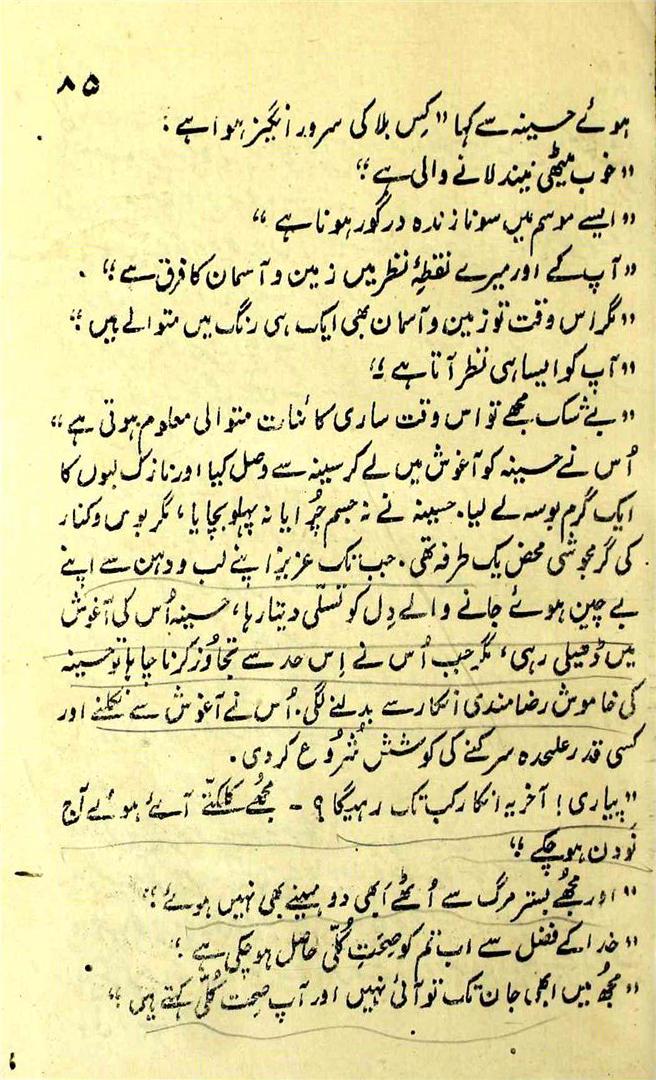 ۸۵
ہوئے حسینہ سے کہا "کِس بلا کی سرور انگیز ہوا ہے؛
"خوب میٹھی نیند لانے والی ہے"
"ایسے موسم میں سونا زندہ درگور ہونا ہے"
"آپ کے اور میرے نقطۂ نظر میں زمین و آسمان کا فرق ہے"
"مگر اس وقت تو زمین و آسمان بھی ایک ہی رنگ میں متوالے ہیں"
"آپ کو ایسا ہی نظر آتا ہے"
"بے شک مجھے تو اس وقت ساری کائنات متوالی معلوم ہوتی ہے"
اُس نے حسینہ کو آغوش میں لے کر سینہ سے وصل کیا اور نازک لبوں کا
ایک گرم بوسہ لے لیا۔ حسینہ نے نہ جسم چُرایا نہ پہلو بچایا، مگر بوس و کنار
کی گرمجوشی محض یک طرفہ تھی۔ جب تک عزیز اپنے لب و دہن سے اپنے
بے چین ہوئے جانے والے دِل کو تسلّی دیتا رہا، حسینہ اُس کی آغوش
میں ڈھیلی رہی، مگر جب اُس نے اِس حد سے تجاوُز کرنا چاہا تو حسینہ
کی خاموش رضامندی انکار سے بدلنے لگی۔ اُس نے آغوش سے نکلنے اور
کسی قدر علیحدہ سرکنے کی کوشش شُروع کر دی۔
"پیاری! آخر یہ انکار کب تک رہیگا؟ - مجُھے کلکتّے آئے ہوئے آج
نَو دن ہو چکے"
"اور مجُھے بستر مرگ سے اُٹھے ابھی دو مہینے بھی نہیں ہوئے"
"خدا کے فضل سے اب تم کو صحتِ کُلّی حاصل ہو چکی ہے"
"مجُھ میں ابھی جان تک تو آئی نہیں اور آپ صحت کُلّی کہتے ہیں"